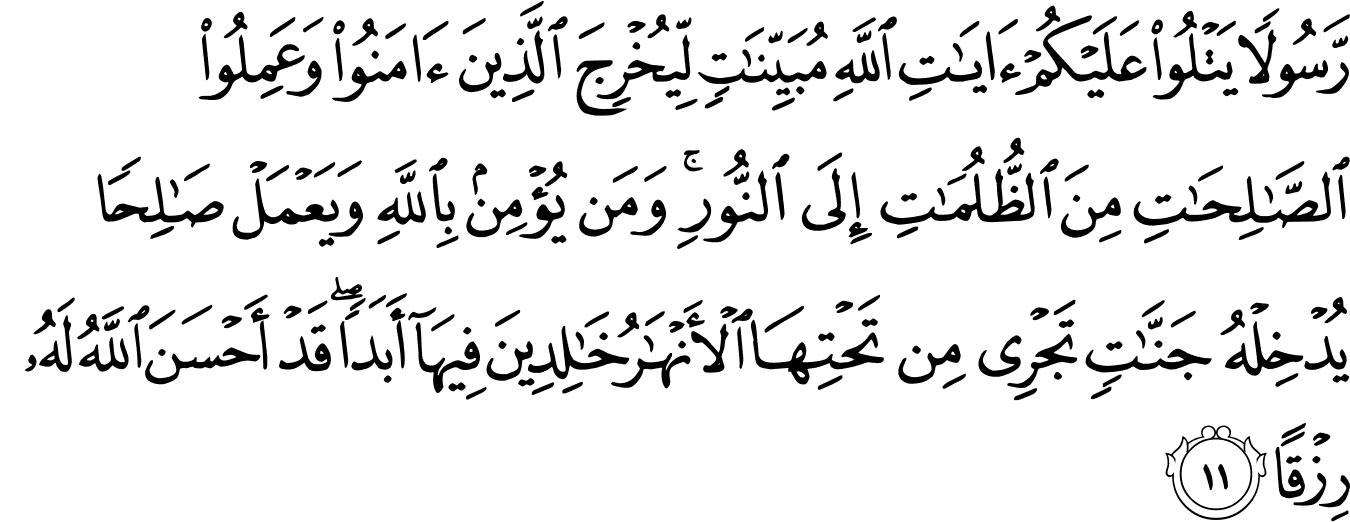 رَّسُولًا يَتْلُوا۟ عَلَيْكُمْ ءَايَٰتِ ٱللَّهِ مُبَيِّنَٰتٍ لِّيُخْرِجَ ٱلَّذِينَ ءَامَنُوا۟ وَعَمِلُوا۟
ٱلصَّٰلِحَٰتِ مِنَ ٱلظُّلُمَٰتِ إِلَى ٱلنُّورِ ۚ وَمَن يُؤْمِنۢ بِٱللَّهِ وَيَعْمَلْ صَٰلِحًا
يُدْخِلْهُ جَنَّٰتٍ تَجْرِى مِن تَحْتِهَا ٱلْأَنْهَٰرُ خَٰلِدِينَ فِيهَآ أَبَدًا ۖ قَدْ أَحْسَنَ ٱللَّهُ لَهُۥ
رِزْقًا ١١